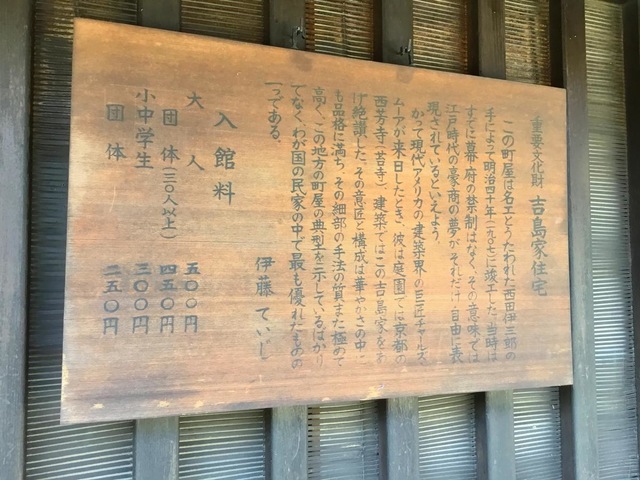 重要文化財 吉島家住宅
この町屋は名工とうたわれた西田伊三郎の
手によって明治四十年(一九〇七)に竣工した。当時は
すでに幕府の禁制はなく、その意味では
江戸時代の豪商の夢がそれだけ自由に表
現されているといえよう。
かつて現代アメリカの建築界の巨匠チャールズ、
ムーアが来日したとき、彼は庭園では京都の
西芳寺(苔寺)、建築ではこの吉島家をあ
げ絶讃した。その意匠と構成は華やかさの中に
も品格に満ち、その細部の手法の質また極めて
高く、この地方の町屋の典型を示しているばかり
でなく、わが国の民家の中で最も優れたものの
一つである。
伊藤 ていじ
入館料
大人 五〇〇円
団体(三〇人以上) 四五〇円
小中学生 三〇〇円
団体 二五〇円